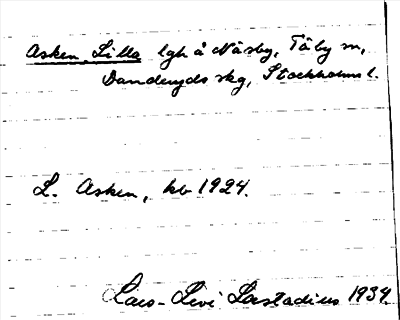 Asken, Lilla lgh å Näsby, Täby sn,
Danderyds skg, Stockholms l.
L. Asken, kb 1924.
Lars-Levi Læstadius 1934.